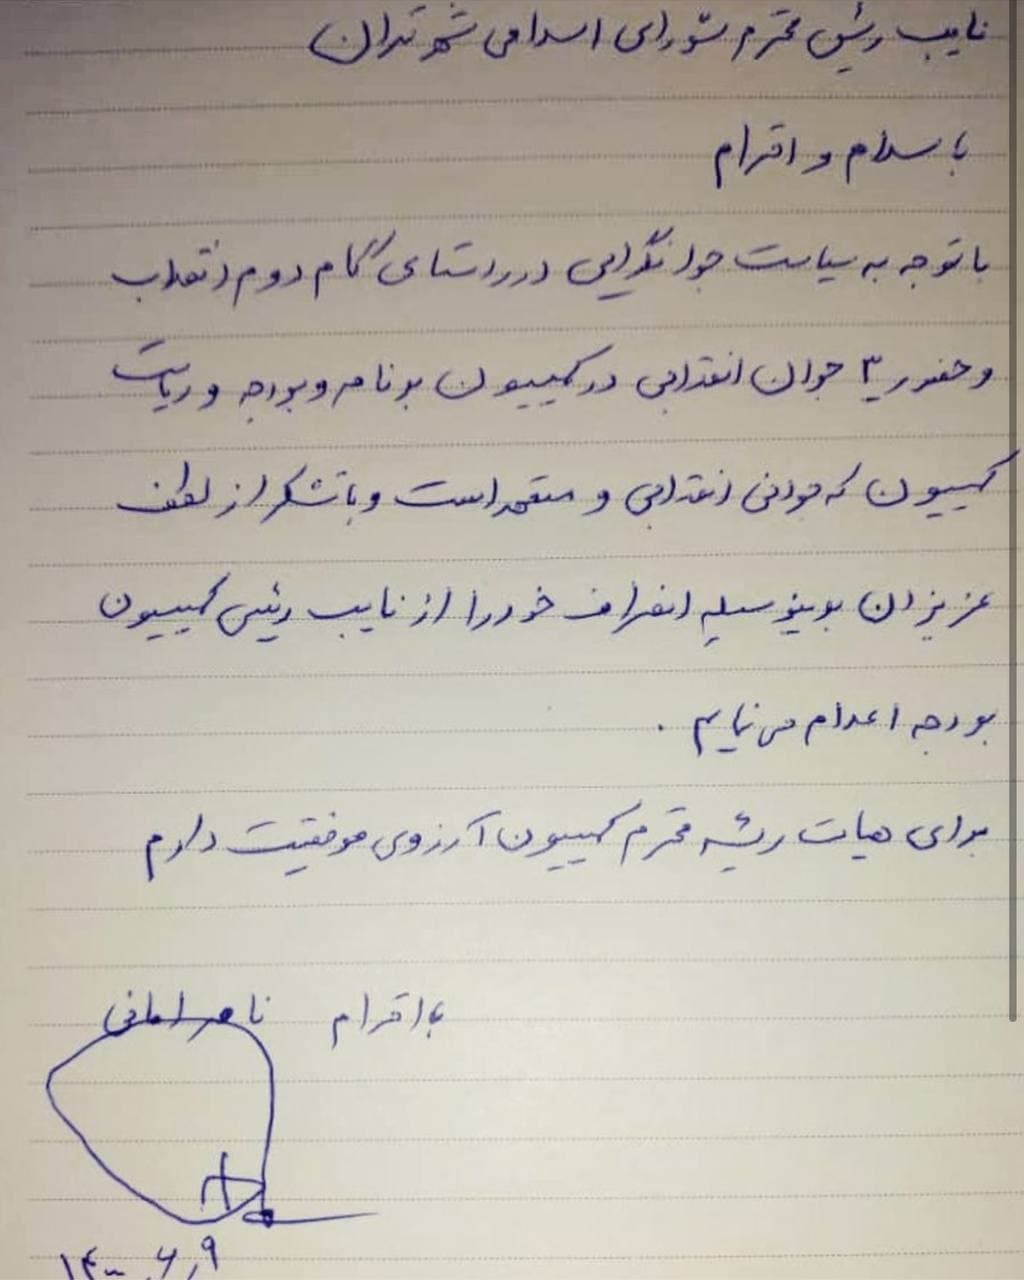 نایب رئیس محترم شورای اسلامی شهر تهران
با سلام و احترام
با توجه به سیاست جوانگرایی در راستای گام دوم انقلاب
و حضور ۳ جوان انقلابی در کمیسیون برنامه و بودجه و ریاست
کمیسیون که جوانی انقلابی و متعهد است و با تشکر از لطف
عزیزان بدینوسیله انصراف خود را از نایب رئیسی کمیسیون
بودجه اعلام می نمایم .
برای هیات رئیسه محترم کمیسیون آرزوی موفقیت دارم
با احترام ناصر امانی
۱۴۰۰,۶,۹